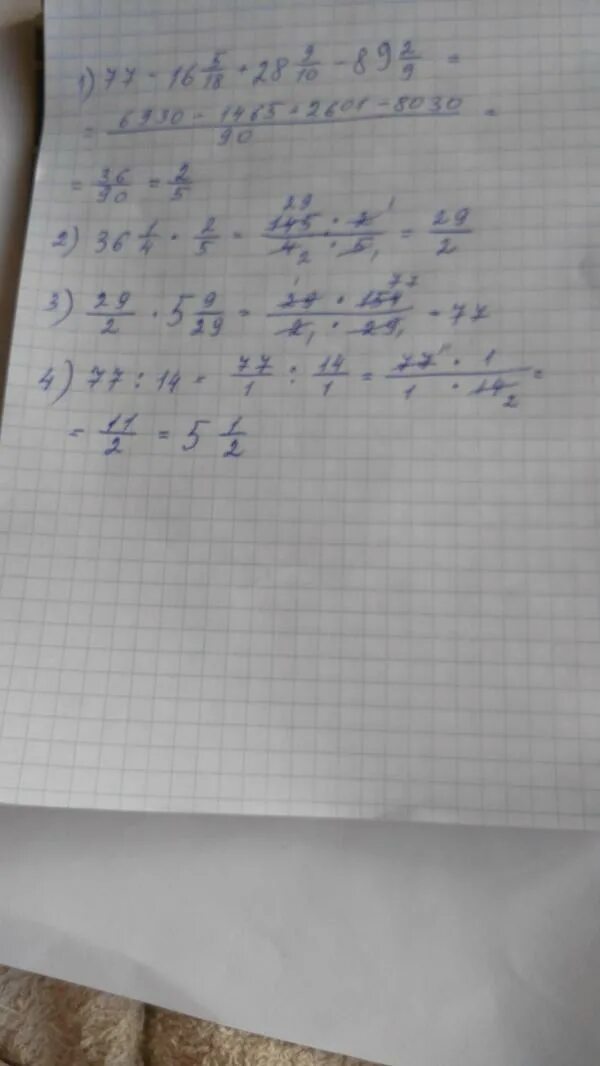 1) 77 - 16 5/18 + 28 9/10 - 89 2/9 =
= (6930 - 1465 + 2601 - 8030)/90 =
= 36/90 = 2/5
2) 36 1/4 · 2/5 = (145 29 · 2 1)/(4 2 · 5 1) = 29/2
3) 29/2 · 5 9/29 = (29 1 · 154 77)/(2 1 · 29 1) = 77
4) 77 : 14 = 77/1 : 14/1 = (77 11 · 1)/(1 · 14 2) =
= 11/2 = 5 1/2